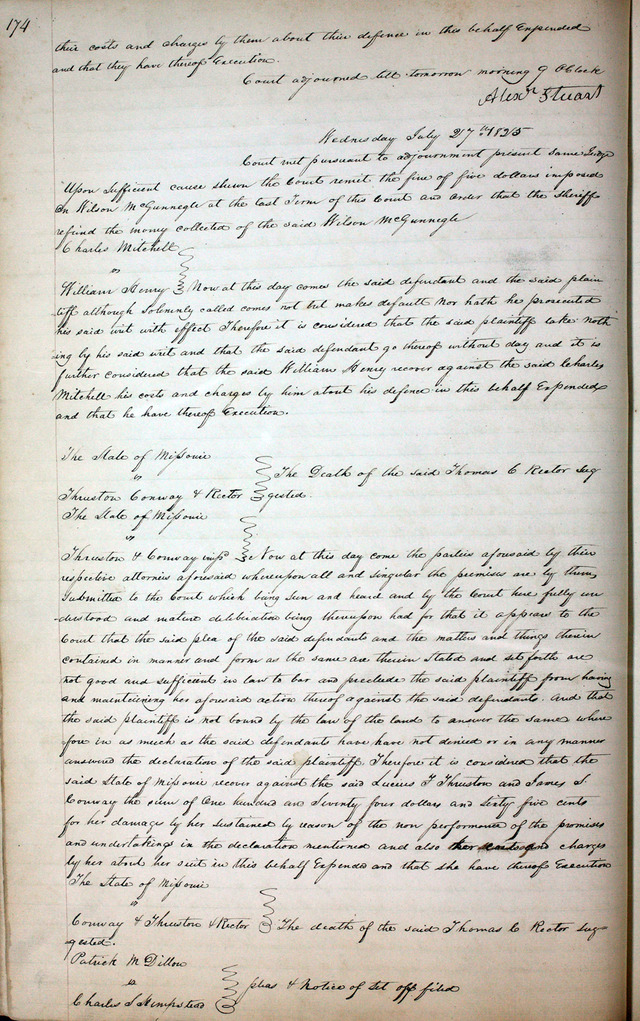 174
their costs and charges by them about their defence in this behalf Expended
and that they have thereof Execution.
Court adjourned till tomorrow morning 9 OClock
Alexr Stuart
Wednesday July 27th 1825
Court met pursuant to adjournment present same Judge
Upon Sufficient cause shewn the Court remit the fine of five dollars imposed
On Wilson McGunnegle at the last Term of this Court and order that the Sheriff
refund the money collected of the said Wilson McGunnegle
Charles Mitchell
"
William Henry Now at this day comes the said defendant and the said plain
tiff although Solemnly called comes not but makes default Nor hath he prosecuted
his said writ with effect Therefore it is considered that the said plaintiff take noth
ing by his said writ and that the said defendant go thereof without day and it is
further considered that the said William Henry recover against the said Charles
Mitchell his costs and charges by him about his defence in this behalf Expended
and that he have thereof Execution.
The State of Missouri
"
The Death of the said Thomas C Rector Sug
Thruston Conway & Rector gested.
The State of Missouri
"
Thruston & Conway impd Now at this day come the parties aforesaid by their
respective attornies aforesaid whereupon all and singular the premises are by them
Submitted to the Court which being seen and heard and by the Court here fully un
derstood and mature deliberation being thereupon had for that it appears to the
Court that the said plea of the said defendants and the matters and things therein
contained in manner and form as the same are therein Stated and set forth are
not good and sufficient in law to bar and preclude the said plaintiff from having
and maintaining her aforesaid action thereof against the said defendants. And that
the said plaintiff is not bound by the law of the land to answer the same where
fore in as much as the said defendants have have not denied or in any manner
answered the declaration of the said plaintiff. Therefore it is considered that the
said State of Missouri recover against the said Lucius F Thruston and James S
Conway the sum of One hundred an Seventy four dollars and Sixty five cents
for her damages by her sustained by reason of the non performance of the promises
and undertakings in the declaration mentioned and also her costs and charges
by her about her suit in this behalf Expended and that she have thereof Execution
The State of Missouri
"
Conway & Thruston & Rector The death of the said Thomas C Rector Sug
gested.
Patrick M Dillon
"
pleas & Notice of Set off filed
Charles S Hempstead